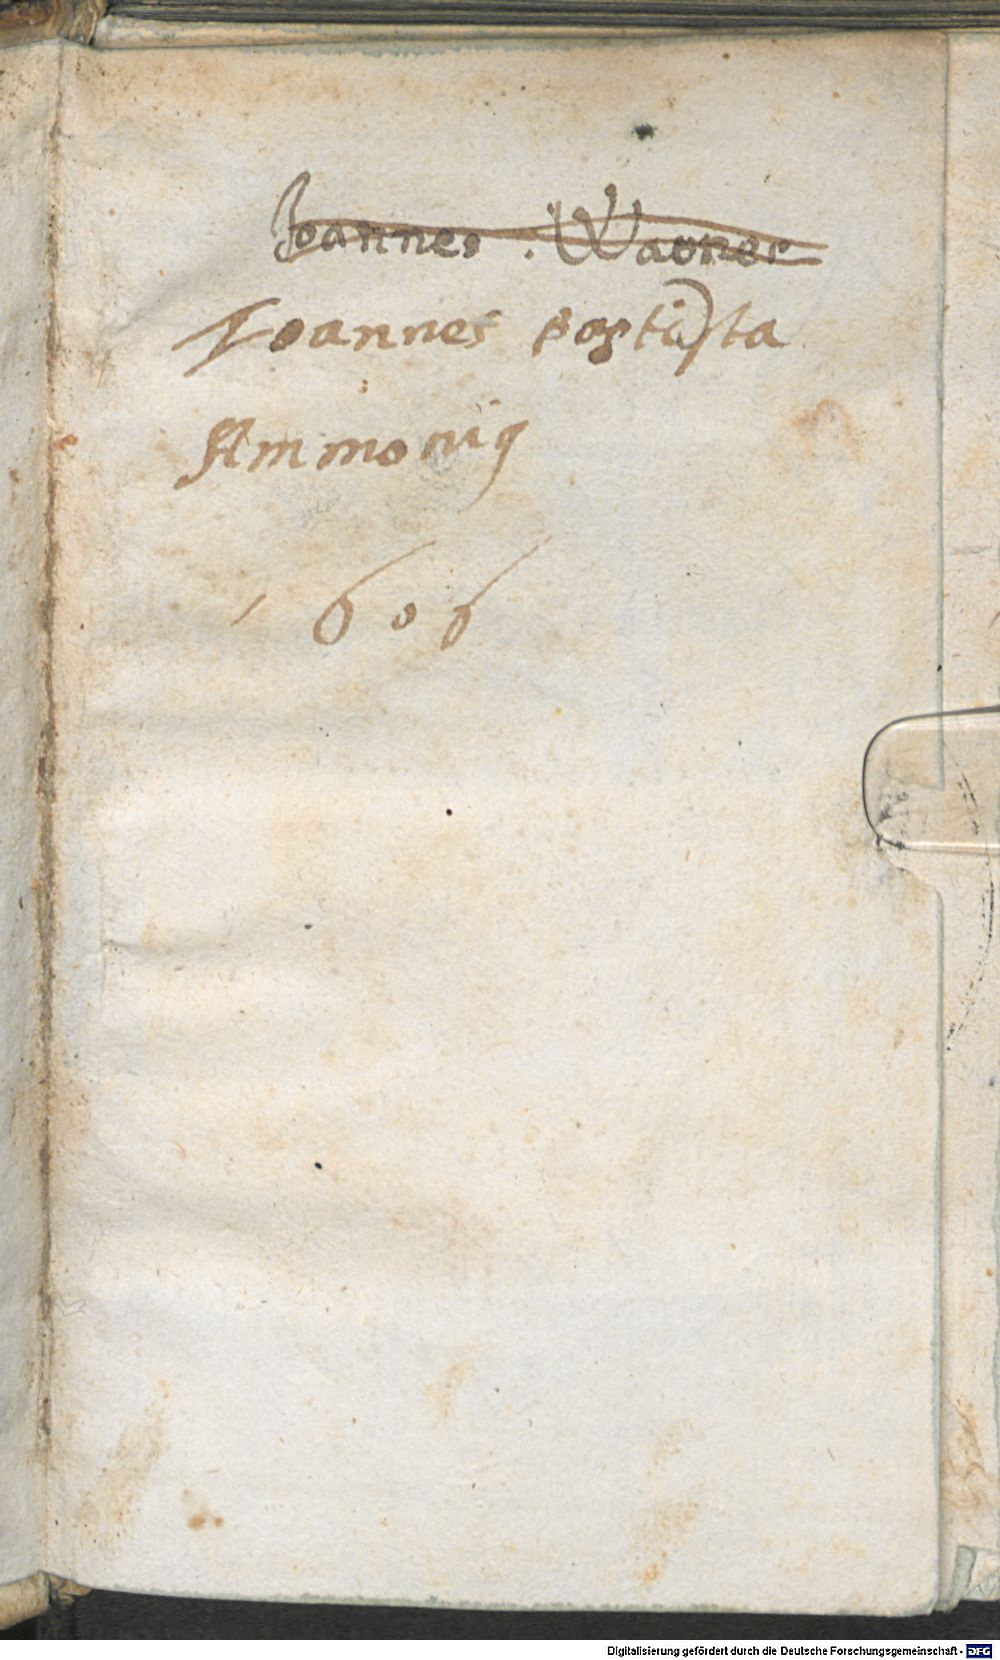 Joannes . Wagner
Ioannes Baptista
Ammoniꝰ
1606
Digitalisierung gefördert durch die Deutsche Forschungsgemeinschaft - DFG